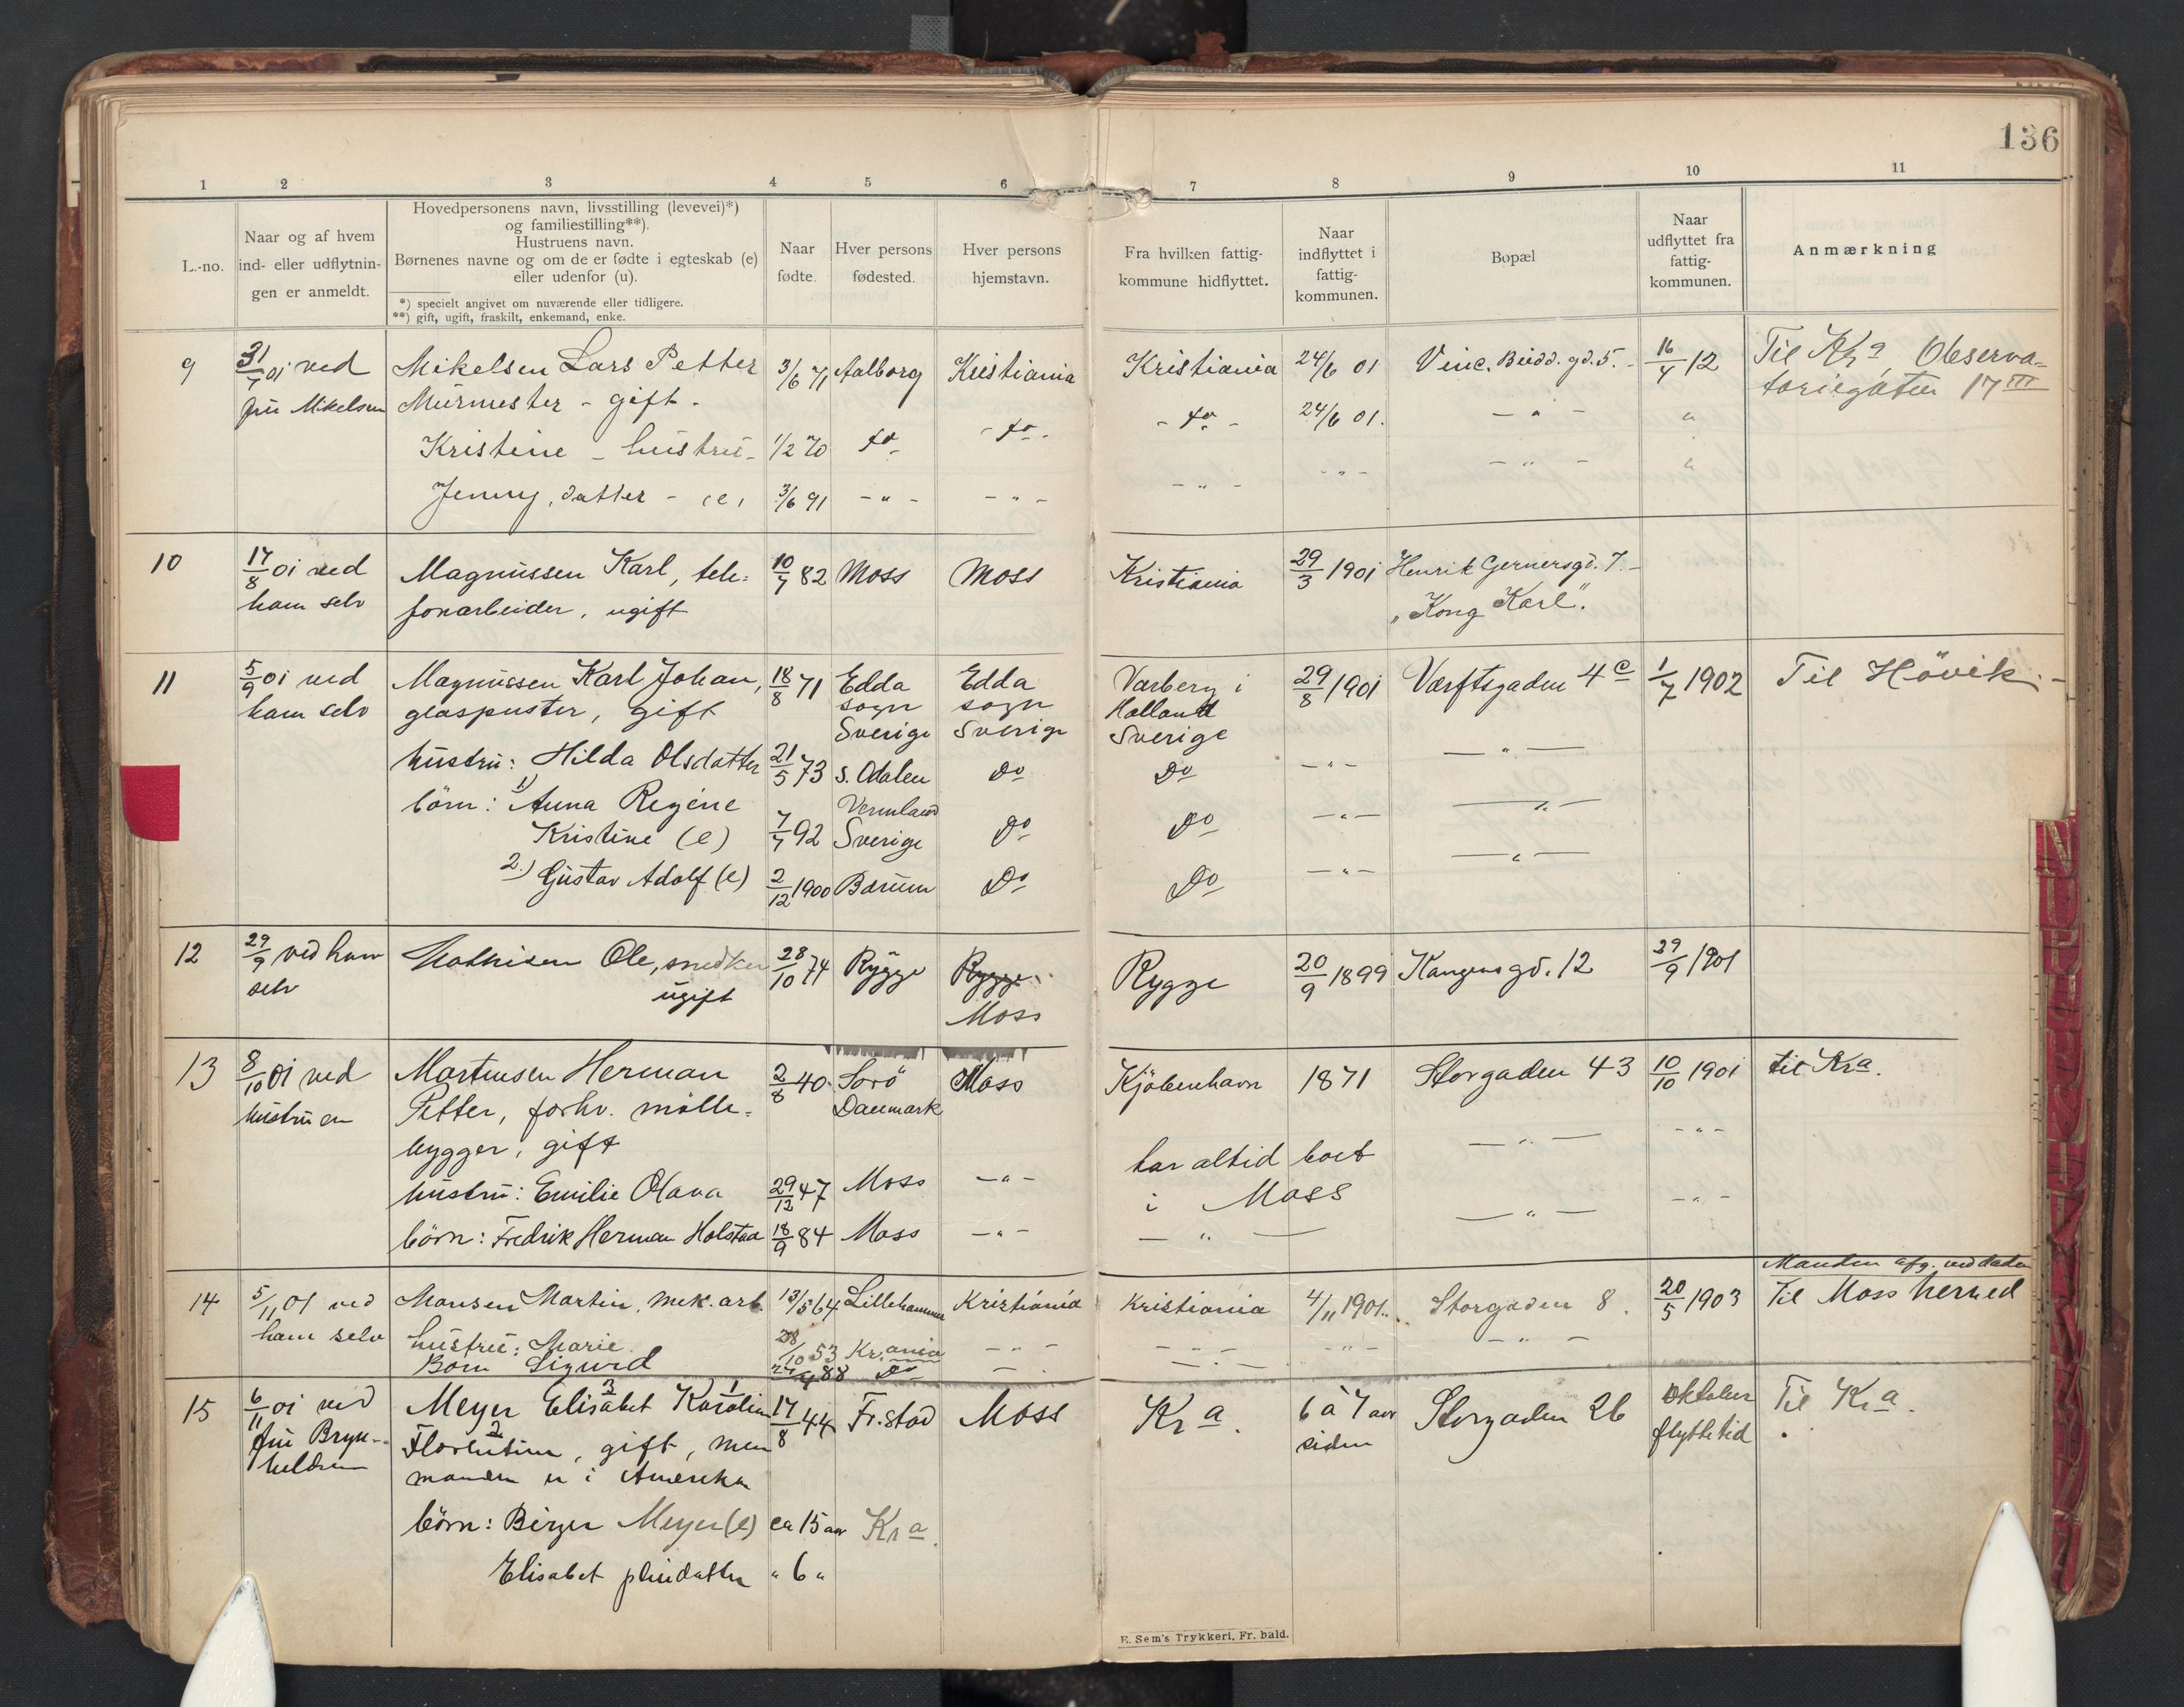 136
1 2 3 4 5 6 7 8 9 10 11
L.-no.
Naar og af hvem
ind- eller udflytnin-
gen er anmeldt.
Hovedpersonens navn, livsstilling (levevei)*)
og familiestilling**).
Hustruens navn.
Børnenes navne og om de er fødte i egteskab (e)
eller udenfor (u).
*) specielt angivet om nuværende eller tidligere.
**) gift, ugift, fraskilt, enkemand, enke.
Naar
fødte.
Hver persons
fødested.
Hver persons
hjemstavn.
Fra hvilken fattig-
kommune hidflyttet.
Naar
indflyttet i
fattig-
kommunen.
Bopæl
Naar
udflyttet fra
fattig-
kommunen.
Anmærkning
9 31/7 01 ved Mikelsen Lars Petter 3/6 71 Aalborg Kristiania Kristiania 24/6 01 Vinc. Budd. gd. 5. 16/4 12 Til Kra Observa-
fru Mikelsen Murmester - gift. - do - 24/6 01. - " - " toriegaten 17 III
Kristine - hustru - 1/2 70 do - do - - " - - " - "
Jenny, datter - (e) 3/6 91 - " - - " - - " -
10 17/8 01 ved Magnussen Karl, tele- 10/7 82 Moss Moss Kristiania 29/3 1901 Henrik Gernersgd. 7. -
ham selv fonarbeider, ugift „Kong Karl".
11 5/9 01 ved Magnussen Karl Johan, 18/8 71 Edda Edda Varberg i 29/8 1901 Værftsgaden 4 c 1/7 1902 Til Hövik. -
ham selv glaspuster, gift sogn sogn Halland
Sverige Sverige Sverige
hustru: Hilda Olsdatter 21/5 73 S. Odalen Do Do - " - - " -
börn: 1) Anna Regine Vermland
Kristine (e) 7/7 92 Sverige Do Do - " - - " -
2.) Gustav Adolf (e) 2/12 1900 Bærum Do Do - " - - " -
12 29/9 ved ham Mathisen Ole, snedker 28/10 74 Rygge Rygge Rygge 20/9 1899 Kongensgd. 12 29/9 1901
selv ugift Moss
13 8/10 01 ved Martinsen Herman 2/8 40. Sorö Moss Kjöbenhavn 1871 Storgaden 43 10/10 1901 til Kra.
hustruen Petter, forhv. mölle- Danmark
bygger, gift har altid boet - " - - " -
hustru: Emilie Olava 29/12 47 Moss - " - i Moss - " -
börn: Fredrik Herman Holstad 18/9 84 Moss - " - - " - - " -
Manden afg. ved döden
14 5/11 01 ved Monsen Martin, mek. arb. 13/5 64 Lillehammer Kristiania Kristiania 4/11 1901. Storgaden 8. 20/5 1903 Til Moss herred
ham selv hustru: Marie 28/10 53 Kr.ania - " - - " - - " - - " -
Born Sigurd 24/4 88 Do - - " -
15 6/11 01 ved Meyer Elisabet 3 Karoline 1 17/8 44 Fr.stad Moss Kra. 6 à 7 aar Storgaden 26 oktober Til Kra.
fru Bryn- Florentine 2, gift, men siden flyttetid
hildsen manden er i Amerika
börn: Birger Meyer (e) ca 15 aar Kra.
Elisabet pleiedatter " 6 "
E. Sem's Trykkeri, Fr. hald.